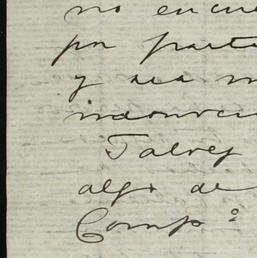 no encue
por parte
y sea m
inconve
Talvez
algo de
Comp.º